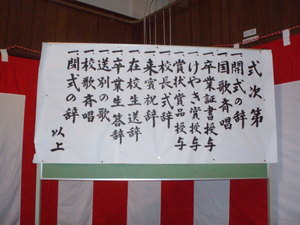 式次第
一開式の辞
一国歌斉唱
一卒業証書授与
一けやき賞授与
一賞状賞品授与
一校長式辞
一来賓祝辞
一在校生送辞
一卒業生答辞
一送別の歌
一校歌斉唱
一閉式の辞
以上